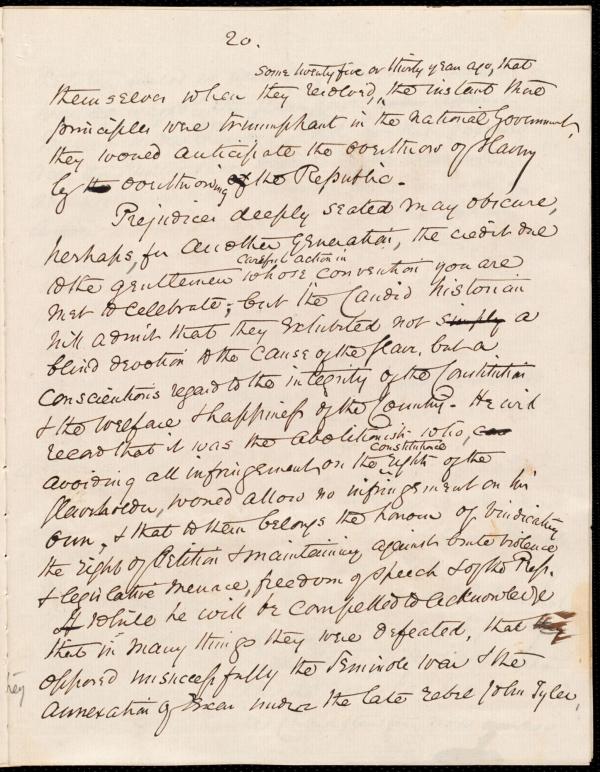 20.
some twenty five or thirty year ago, that
themselves when they resolved, the instant their
principles were triumphant in the National Government,
they would anticipate the overthrow of Slavery
by the overthrowing of the Republic.
Prejudices deeply seated may obscure,
perhaps, for another Generation, the credit due
careful action in
to the gentlemen whose convention you are
met to celebrate; but the Candid historian
will admit that they exhibited not simply a
blind devotion to the cause of the slave, but a
conscientious regard to the integrity of the Constitution
& the welfare & happiness of the Country. He will
record that it was the abolitionists who,
constitutional
avoiding all infringement on the rights of the
slaveholder, would allow no infringement on his
own, & that to them belongs the honour of vindicating
the right of Petition & maintaining against brute violence
& legislative menace, freedom of speech & of the Press.
If While he will be compelled to acknowledge
that in many things they were defeated, that they
opposed unsuccessfully the Seminole war & the
annexation of Texas under the late rebel John Tyler,